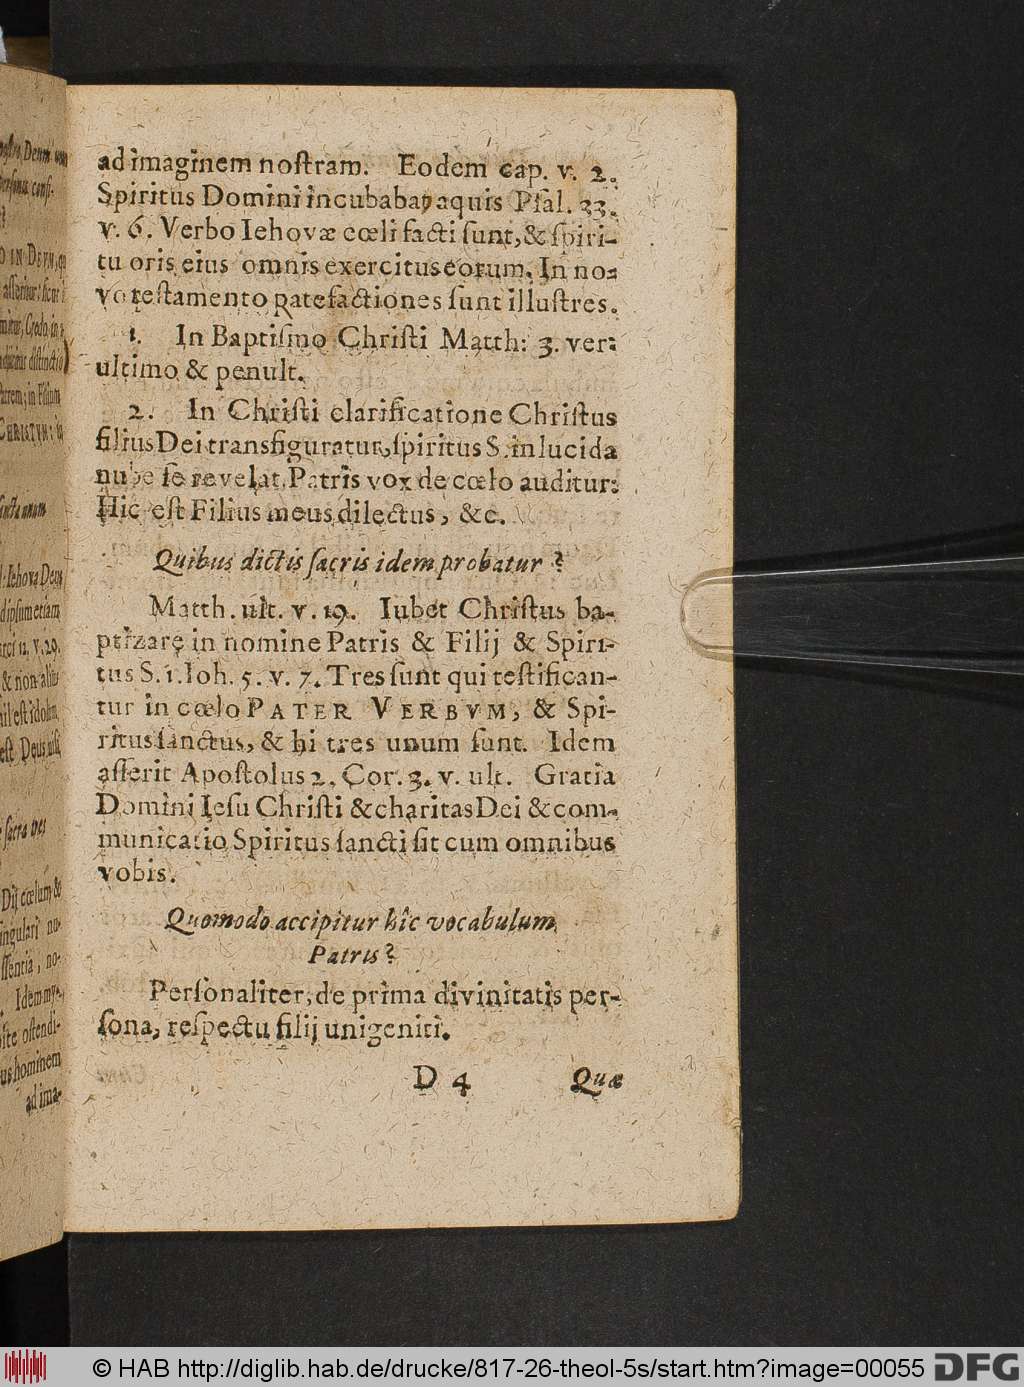 ad imaginem noſtram. Eodem cap. v. 2.
Spiritus Domini incubabat aquis Pſal. 33.
v. 6. Verbo Iehovæ cœli facti ſunt, & ſpiri-
tu oris eius omnis exercitus eorum. In no-
vo teſtamento patefactiones ſunt illuſtres.
1. In Baptiſmo Chriſti Matth: 3. ver:
ultimo & penult.
2. In Chriſti clarificatione Chriſtus
filius Dei transfiguratur, ſpiritus S. in lucida
nube ſe revelat, Patris vox de cœlo auditur:
Hic eſt Filius meus dilectus, &c.
Quibus dictis ſacris idem probatur?
Matth. ult. v. 19. Iubet Chriſtus ba-
ptizare in nomine Patris & Filij & Spiri-
tus S. 1. Ioh. 5. v. 7. Tres ſunt qui teſtifican-
tur in cœlo PATER VERBVM, & Spi-
ritus ſanctus, & hi tres unum ſunt. Idem
aſſerit Apoſtolus 2. Cor. 3. v. ult. Gratia
Domini Ieſu Chriſti & charitas Dei & com-
municatio Spiritus ſancti ſit cum omnibus
vobis.
Quomodo accipitur hîc vocabulum
Patris?
Perſonaliter, de prima divinitatis per-
ſona, reſpectu filij unigeniti.
D 4 Quæ
© HAB http://diglib.hab.de/drucke/817-26-theol-5s/start.htm?image=00055
DFG